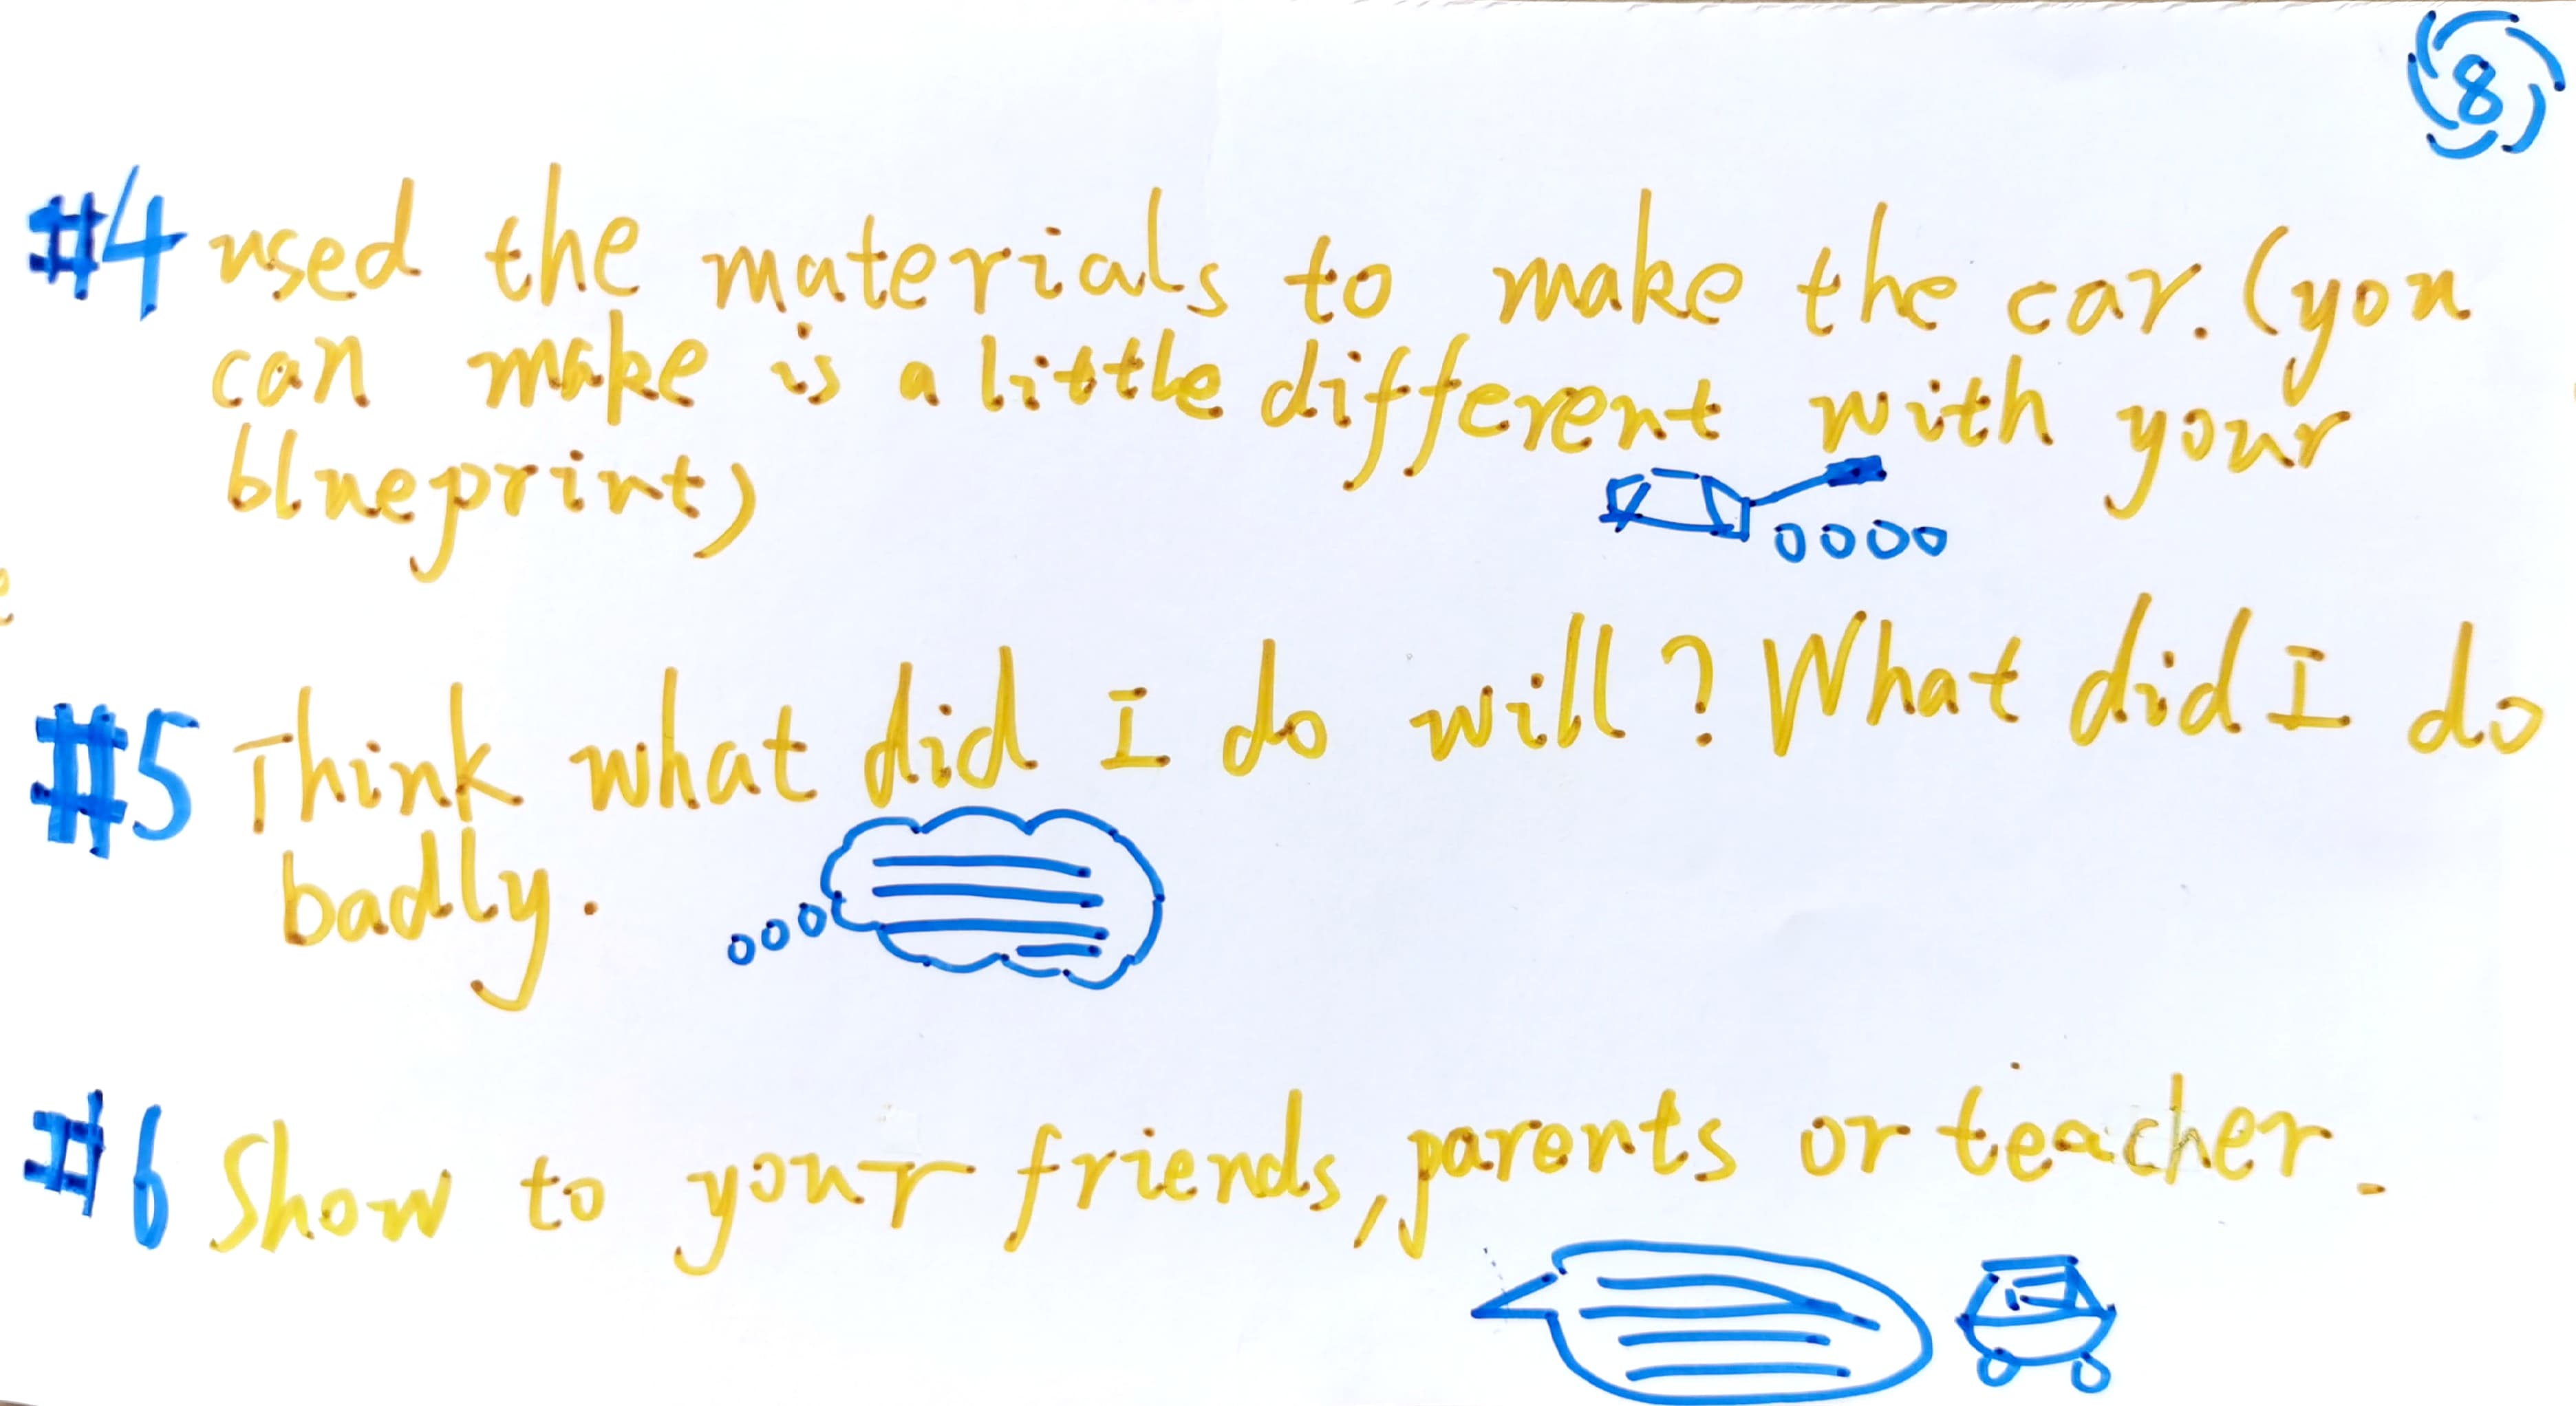 8
#4 used the materials to make the car. (you
can make is a little different with your
blueprint)
#5 Think what did I do will? What did I do
badly.
#6 Show to your friends, parents or teacher.